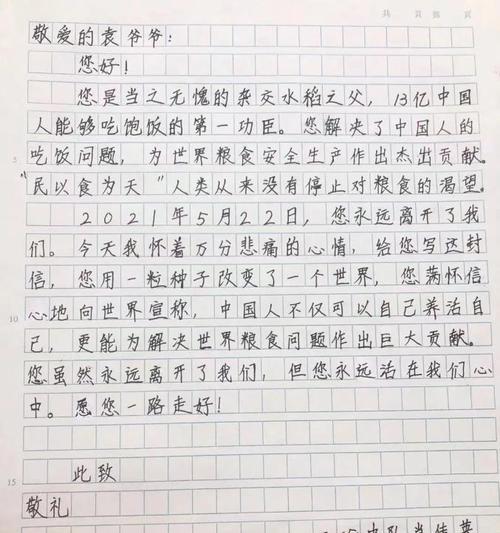 共 页 第 页
敬爱的袁爷爷：
您好！
您是当之无愧的杂交水稻之父，13亿中国
人能够吃饱饭的第一功臣。您解决了中国人的
5 吃饭问题，为世界粮食安全生产作出杰出贡献。
“民以食为天”人类从来没有停止对粮食的渴望。
2021年5月22日，您永远离开了我
们。今天我怀着万分悲痛的心情，给您写这封
信，您用一粒种子改变了一个世界，您满怀信
10 心地向世界宣称，中国人不仅可以自己养活自
己，更能为解决世界粮食问题作出巨大贡献。
您虽然永远离开了我们，但您永远活在我们心
中。愿您一路走好！
15 此致
敬礼